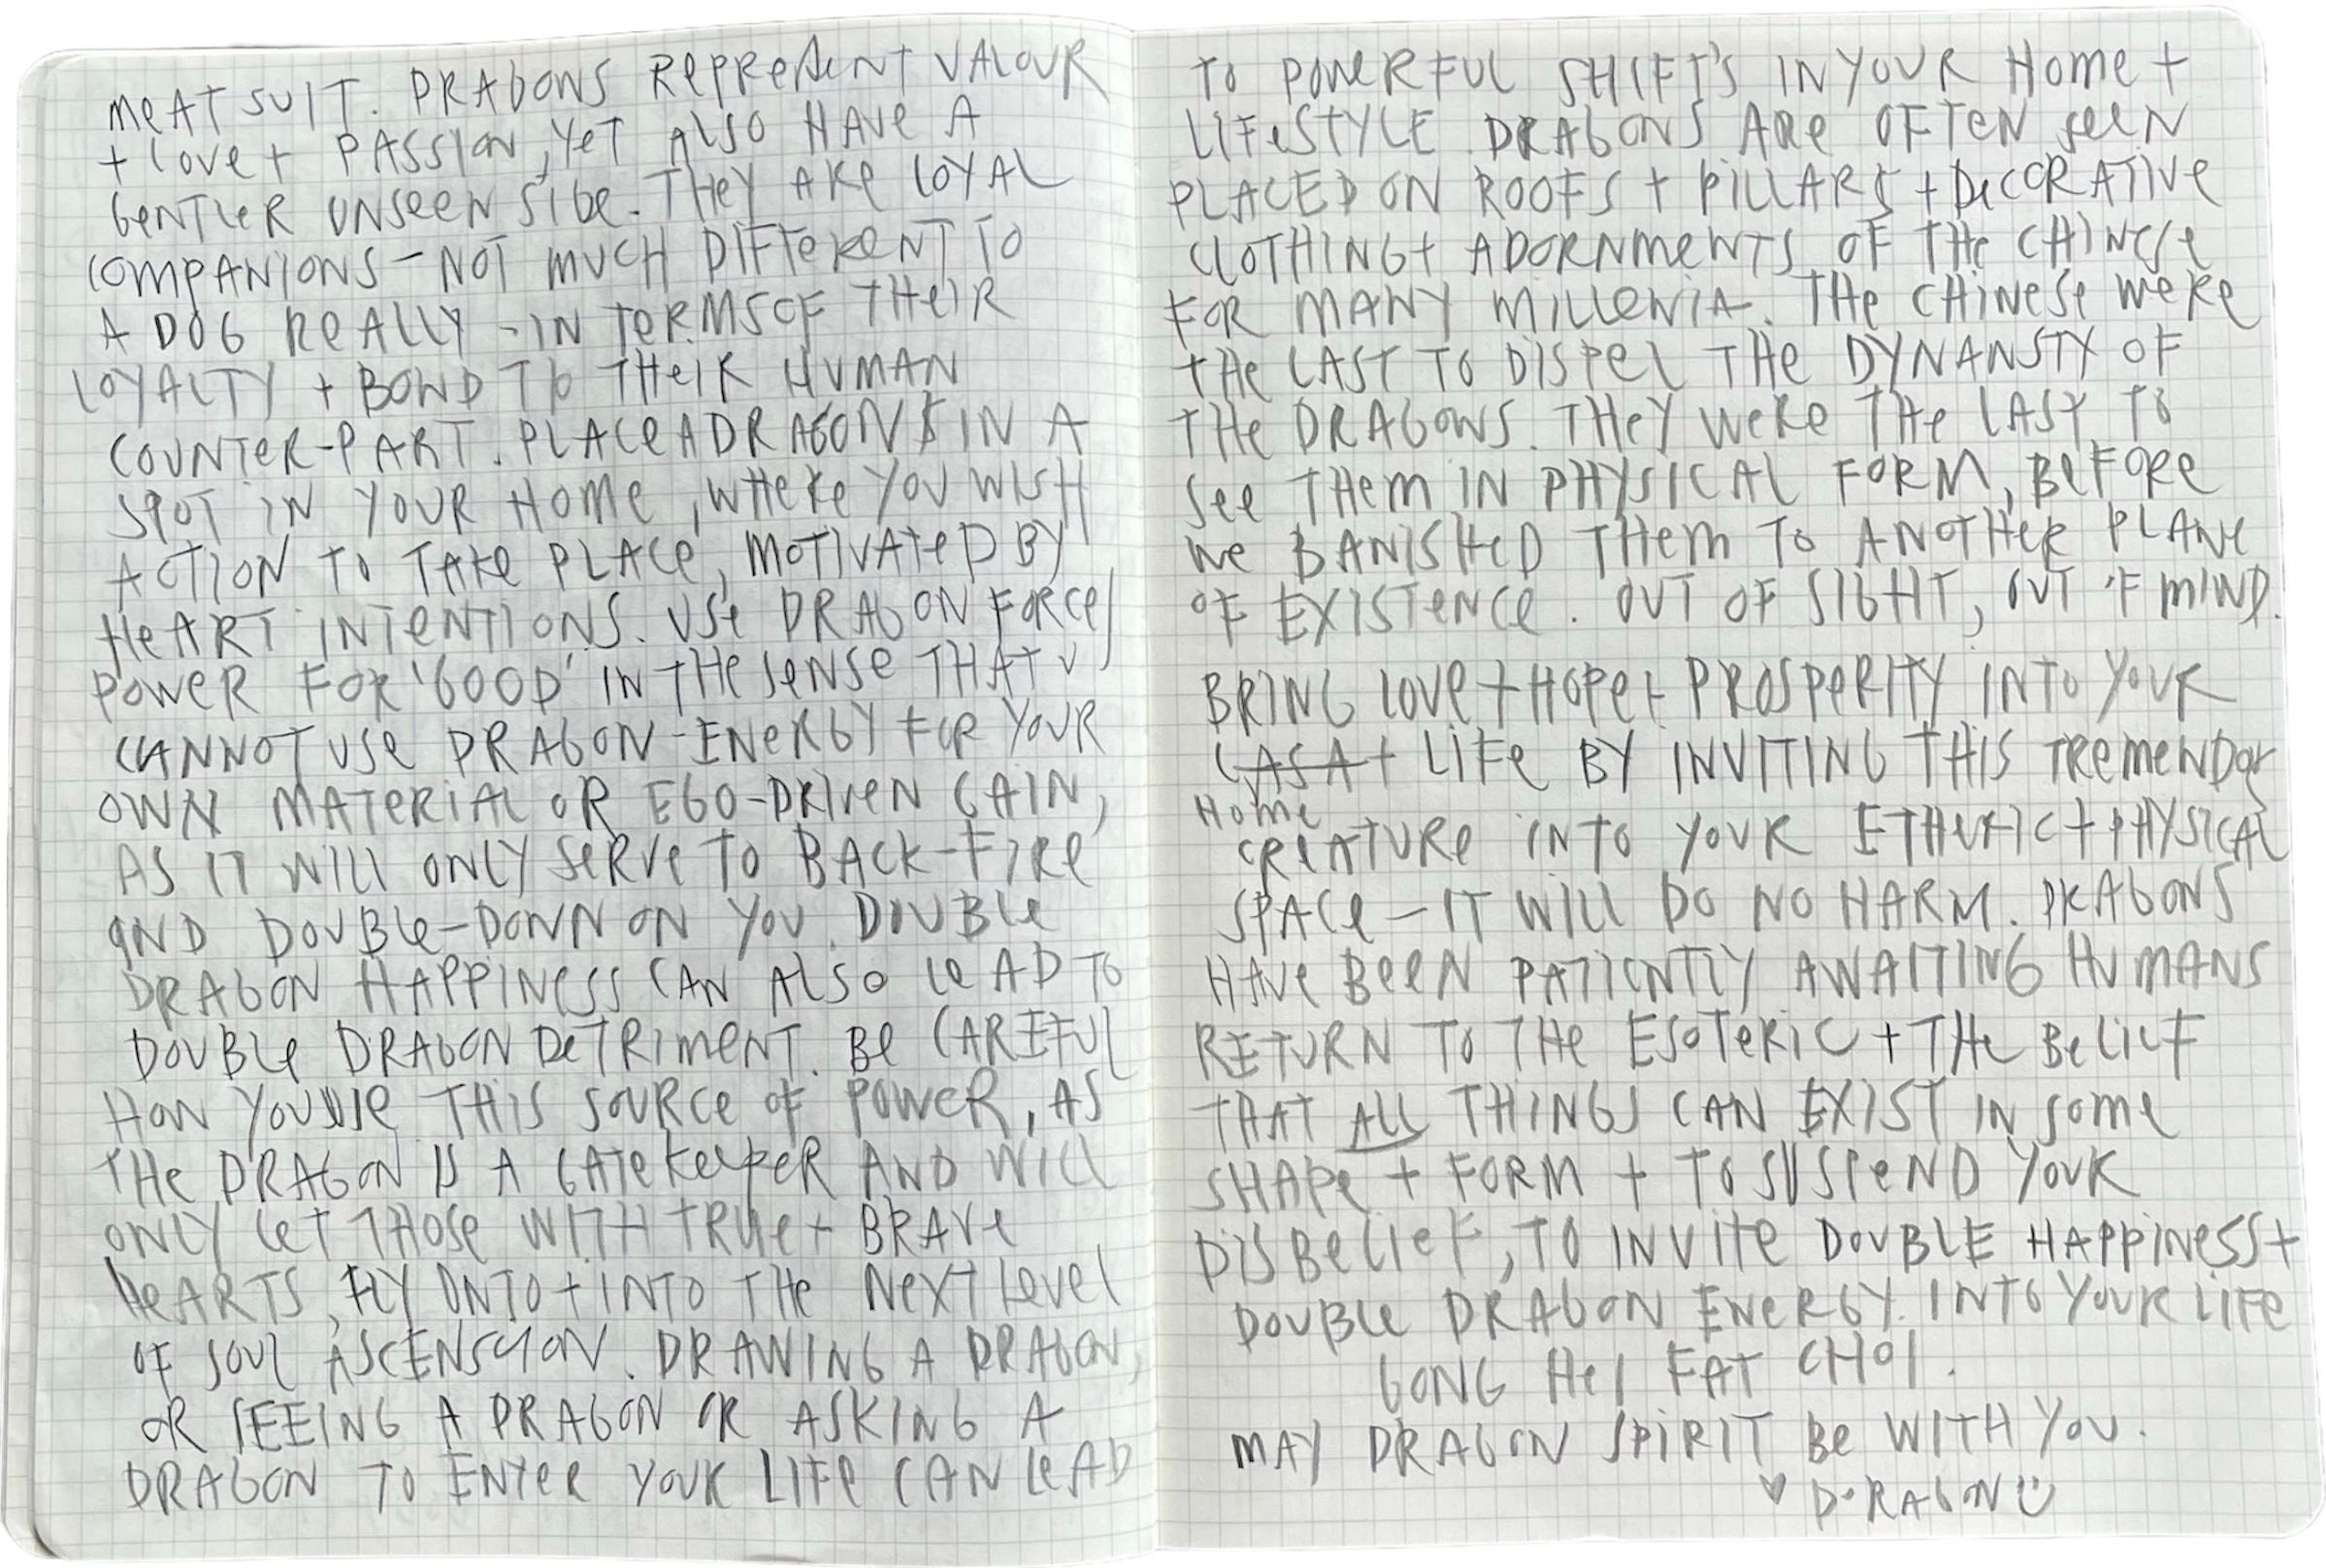 MEAT SUIT. DRAGONS REPRESENT VALOUR
+ LOVE + PASSION, YET ALSO HAVE A
GENTLER UNSEEN SIDE. THEY ARE LOYAL
COMPANIONS - NOT MUCH DIFFERENT TO
A DOG REALLY - IN TERMS OF THEIR
LOYALTY + BOND TO THEIR HUMAN
COUNTER-PART. PLACE A DRAGON IN A
SPOT IN YOUR HOME, WHERE YOU WISH
ACTION TO TAKE PLACE, MOTIVATED BY
HEART INTENTIONS. USE DRAGON FORCE/
POWER FOR 'GOOD' IN THE SENSE THAT U
CANNOT USE DRAGON-ENERGY FOR YOUR
OWN MATERIAL OR EGO-DRIVEN GAIN,
AS IT WILL ONLY SERVE TO BACK-FIRE
AND DOUBLE-DOWN ON YOU. DOUBLE
DRAGON HAPPINESS CAN ALSO LEAD TO
DOUBLE DRAGON DETRIMENT. BE CAREFUL
HOW YOU USE THIS SOURCE OF POWER, AS
THE DRAGON IS A GATEKEEPER AND WILL
ONLY LET THOSE WITH TRUE + BRAVE
HEARTS, FLY ONTO + INTO THE NEXT LEVEL
OF SOUL ASCENSION. DRAWING A DRAGON,
OR SEEING A DRAGON OR ASKING A
DRAGON TO ENTER YOUR LIFE CAN LEAD
TO POWERFUL SHIFT'S IN YOUR HOME +
LIFESTYLE. DRAGONS ARE OFTEN SEEN
PLACED ON ROOFS + PILLARS + DECORATIVE
CLOTHING + ADORNMENTS OF THE CHINESE
FOR MANY MILLENIA. THE CHINESE WERE
THE LAST TO DISPEL THE DYNANSTY OF
THE DRAGONS. THEY WERE THE LAST TO
SEE THEM IN PHYSICAL FORM, BEFORE
WE BANISHED THEM TO ANOTHER PLANE
OF EXISTENCE. OUT OF SIGHT, OUT 'F MIND.
BRING LOVE + HOPE + PROSPERITY INTO YOUR
CASA + LIFE BY INVITING THIS TREMENDOUS
HOME
CREATURE INTO YOUR ETHERIC + PHYSICAL
SPACE - IT WILL DO NO HARM. DRAGONS
HAVE BEEN PATIENTLY AWAITING HUMANS
RETURN TO THE ESOTERIC + THE BELIEF
THAT ALL THINGS CAN EXIST IN SOME
SHAPE + FORM + TO SUSPEND YOUR
DISBELIEF, TO INVITE DOUBLE HAPPINESS +
DOUBLE DRAGON ENERGY INTO YOUR LIFE
GONG HEI FAT CHOI.
MAY DRAGON SPIRIT BE WITH YOU.
♥ D·RAGON